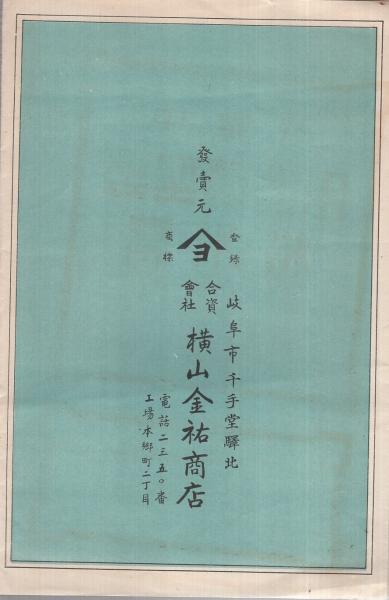 發賣元
登録
商標
ヨ
岐阜市千手堂驛北
合資
會社
横山金祐商店
電話二三五〇番
工場本郷町二丁目